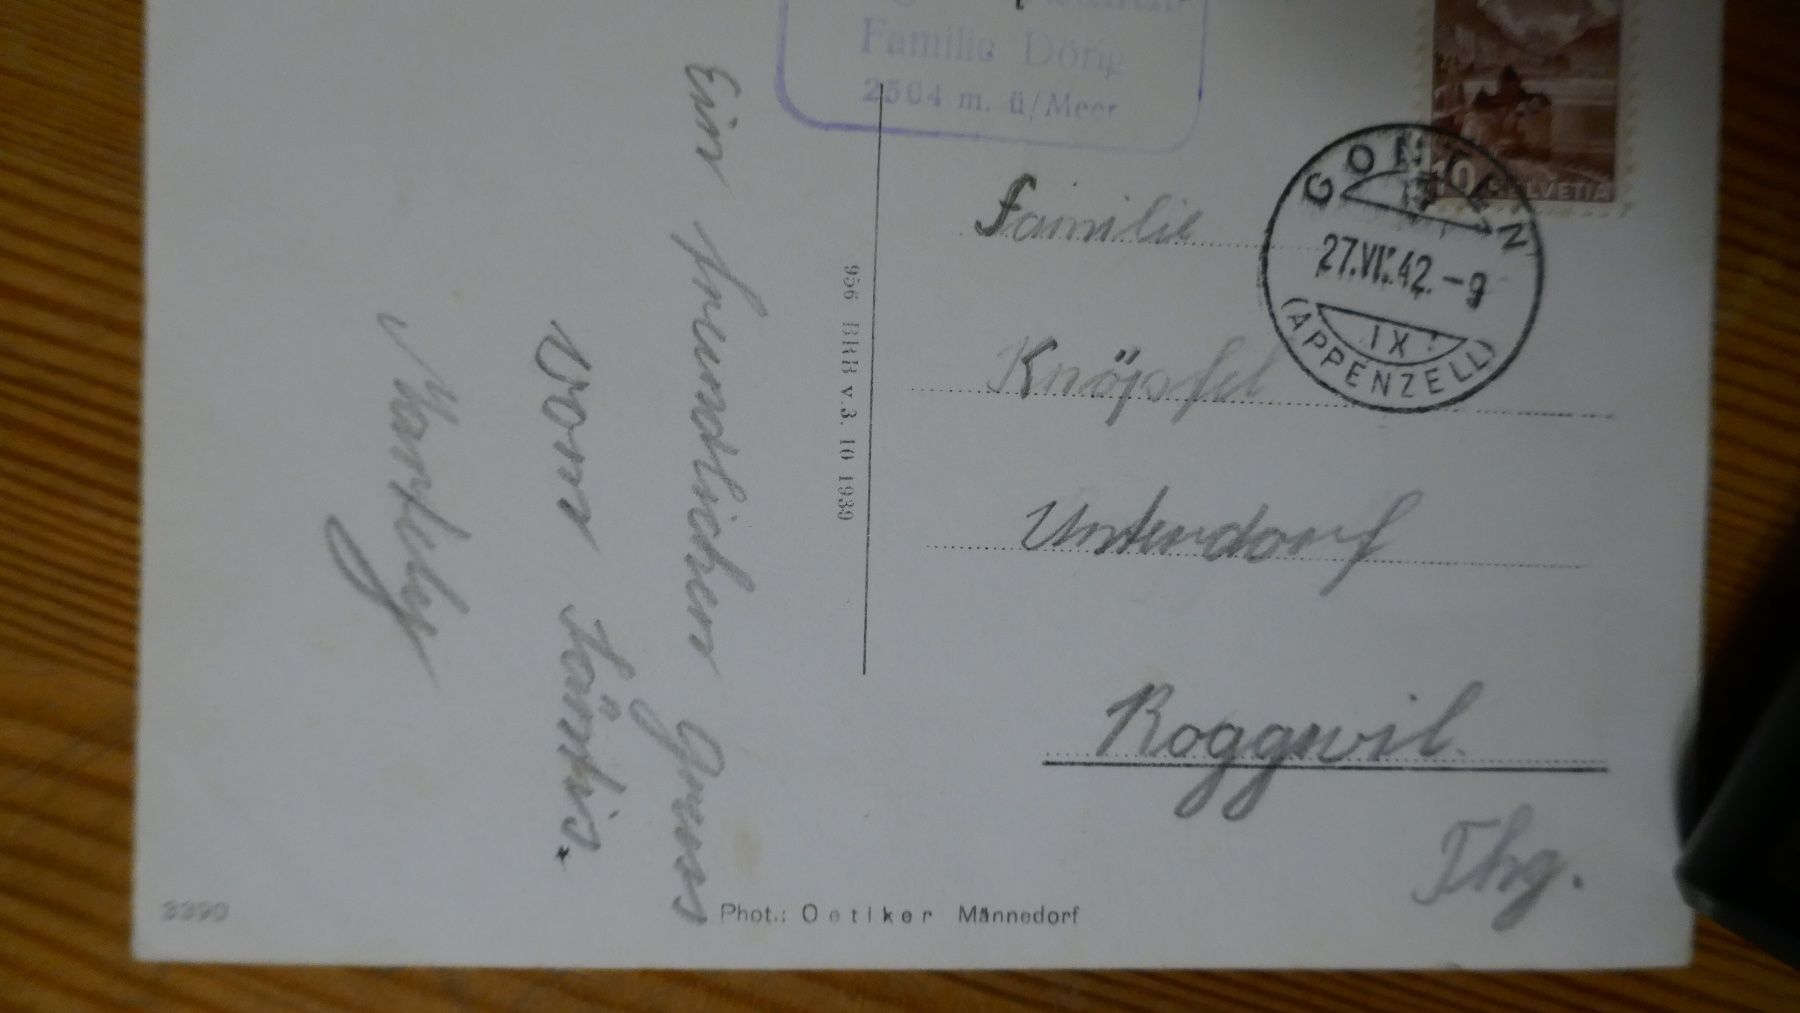 Familie Dörig
2504 m. ü/Meer
HELVETIA
GONTEN
27.VII.42.-9
IX
(APPENZELL)
Ein freundlichen Gruss
vom Säntis.
956 BRB v. 3. 10 1939
Familie
Knöpfel
Unterdorf
Roggwil.
Thg.
3390
Phot.: Oetiker Männedorf